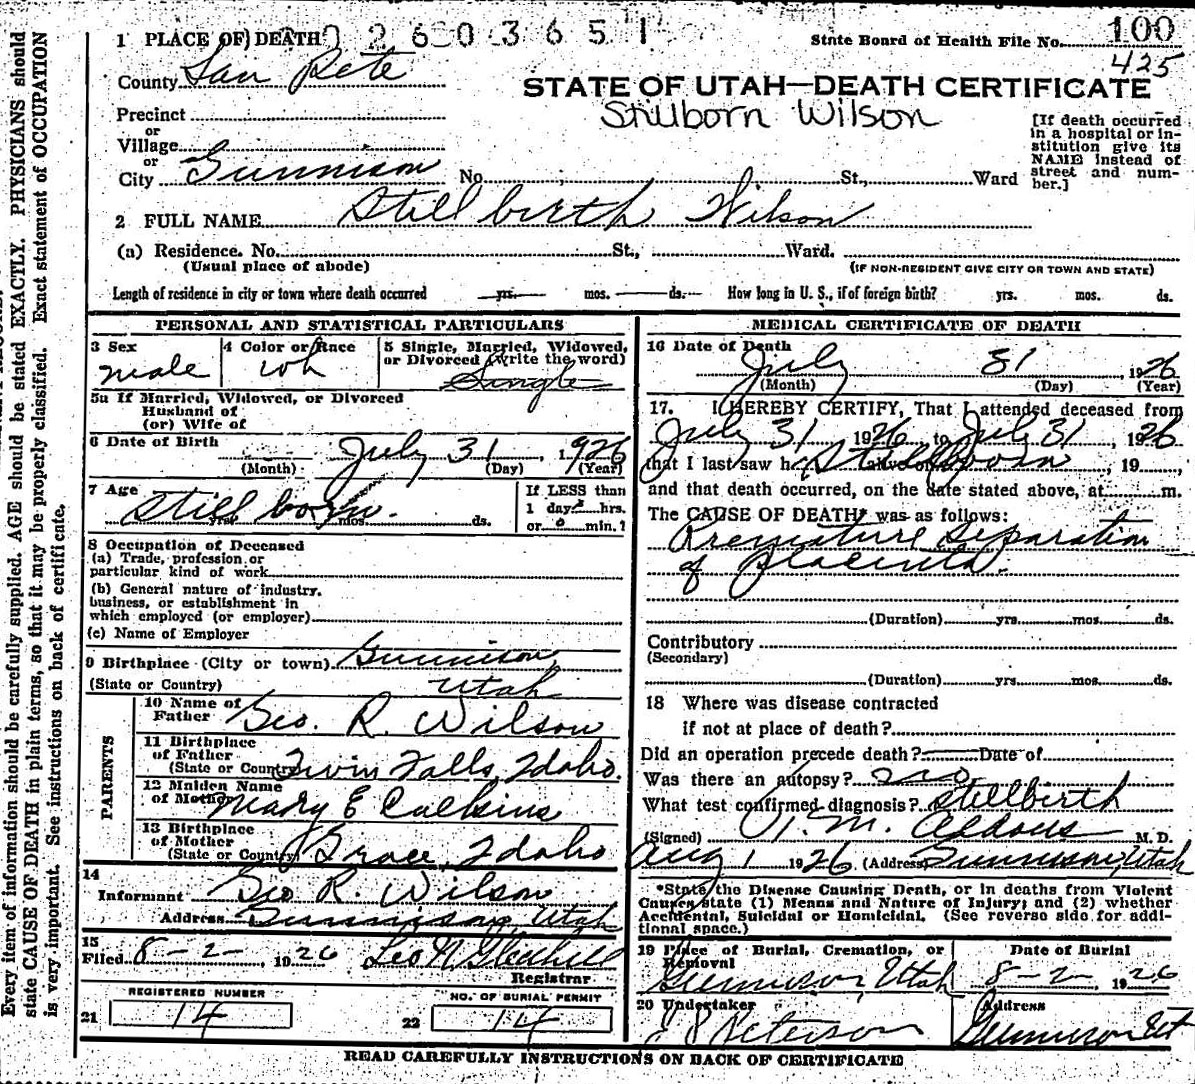 2603651
State Board of Health File No. 100
425
1 PLACE OF DEATH
County San Pete
STATE OF UTAH—DEATH CERTIFICATE
Stillborn Wilson
Precinct
or
Village
or
City Gunnison No. St., Ward
[If death occurred
in a hospital or in-
stitution give its
NAME instead of
street and num-
ber.]
2 FULL NAME Stillbirth Wilson
(a) Residence. No. St., Ward.
(Usual place of abode) (IF NON-RESIDENT GIVE CITY OR TOWN AND STATE)
Length of residence in city or town where death occurred yrs. mos. ds. How long in U. S., if of foreign birth? yrs. mos. ds.
PERSONAL AND STATISTICAL PARTICULARS
3 Sex
male
4 Color or Race
wh
5 Single, Married, Widowed,
or Divorced (write the word)
Single
5a If Married, Widowed, or Divorced
Husband of
(or) Wife of
6 Date of Birth
July 31, 1926
(Month) (Day) (Year)
7 Age
Still born.
yrs. mos. ds.
If LESS than
1 day, hrs.
or 0 min.?
8 Occupation of Deceased
(a) Trade, profession or
particular kind of work
(b) General nature of industry,
business, or establishment in
which employed (or employer)
(c) Name of Employer
9 Birthplace (City or town) Gunnison,
(State or Country) Utah
PARENTS
10 Name of
Father Geo. R. Wilson
11 Birthplace
of Father
(State or Country) Twin Falls, Idaho.
12 Maiden Name
of Mother Mary E Calkins
13 Birthplace
of Mother
(State or Country) Grace, Idaho
14
Informant Geo R. Wilson
Address Gunnison, Utah
15
Filed 8-2-, 1926 Leo N Gledhill
Registrar
REGISTERED NUMBER
21 14
NO. OF BURIAL PERMIT
22 14
MEDICAL CERTIFICATE OF DEATH
16 Date of Death
July 31, 1926
(Month) (Day) (Year)
17. I HEREBY CERTIFY, That I attended deceased from
July 31, 1926, to July 31, 1926
that I last saw h alive on Stillborn, 19
and that death occurred, on the date stated above, at m.
The CAUSE OF DEATH* was as follows:
Premature Separation
of placenta.
(Duration) yrs. mos. ds.
Contributory
(Secondary)
(Duration) yrs. mos. ds.
18 Where was disease contracted
if not at place of death?
Did an operation precede death? Date of
Was there an autopsy? no
What test confirmed diagnosis? Stillbirth
(Signed) M. Aldous M. D.
Aug 1 1926 (Address) Gunnison, Utah
*State the Disease Causing Death, or in deaths from Violent
Causes, state (1) Means and Nature of Injury; and (2) whether
Accidental, Suicidal or Homicidal. (See reverse side for addi-
tional space.)
19 Place of Burial, Cremation, or
Removal
Gunnison, Utah
Date of Burial
8-2-, 1926
20 Undertaker
Peterson
Address
Gunnison Ut
READ CAREFULLY INSTRUCTIONS ON BACK OF CERTIFICATE
Every item of information should be carefully supplied. AGE should be stated EXACTLY. PHYSICIANS should
state CAUSE OF DEATH in plain terms, so that it may be properly classified. Exact statement of OCCUPATION
is very important. See instructions on back of certificate.